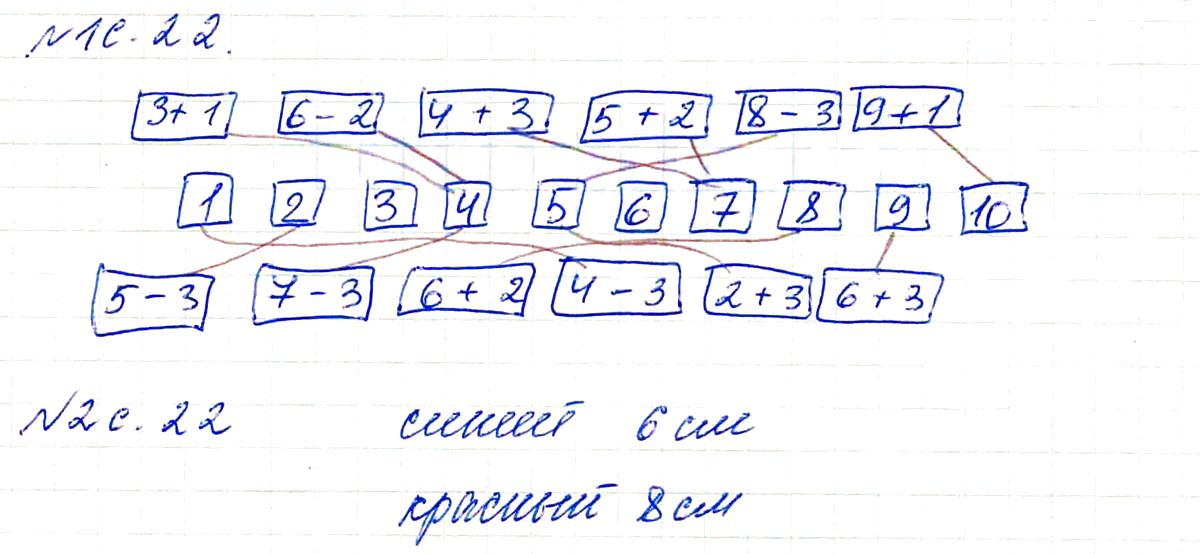 №1 с. 22.
3+1 6-2 4+3 5+2 8-3 9+1
1 2 3 4 5 6 7 8 9 10
5-3 7-3 6+2 4-3 2+3 6+3
№2 с. 22 синий 6 см
красный 8 см